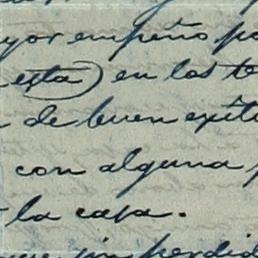 yor empeño p
esta) en los te
de buen exit
con alguna
la casa.
que sin perdid